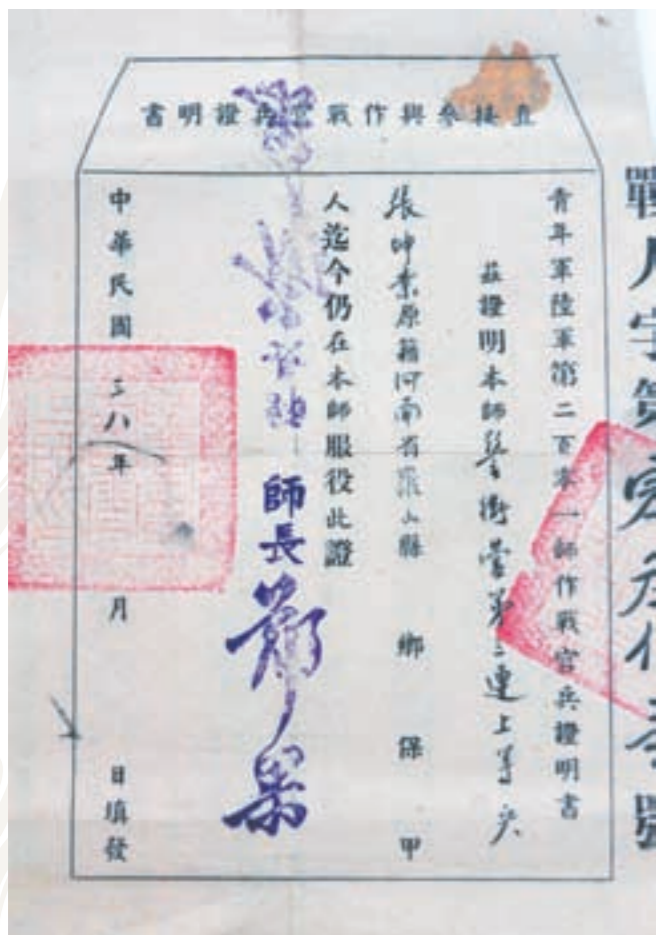 直接參與作戰官兵證明書
字第 號
青年軍陸軍第二百零一師作戰官兵證明書
茲證明本師警衛營第二連上等兵
張坤業原籍河南省羅山縣 鄉 保 甲
人迄今仍在本師服役此證
師長鄭果
中華民國三八年 月 日填發